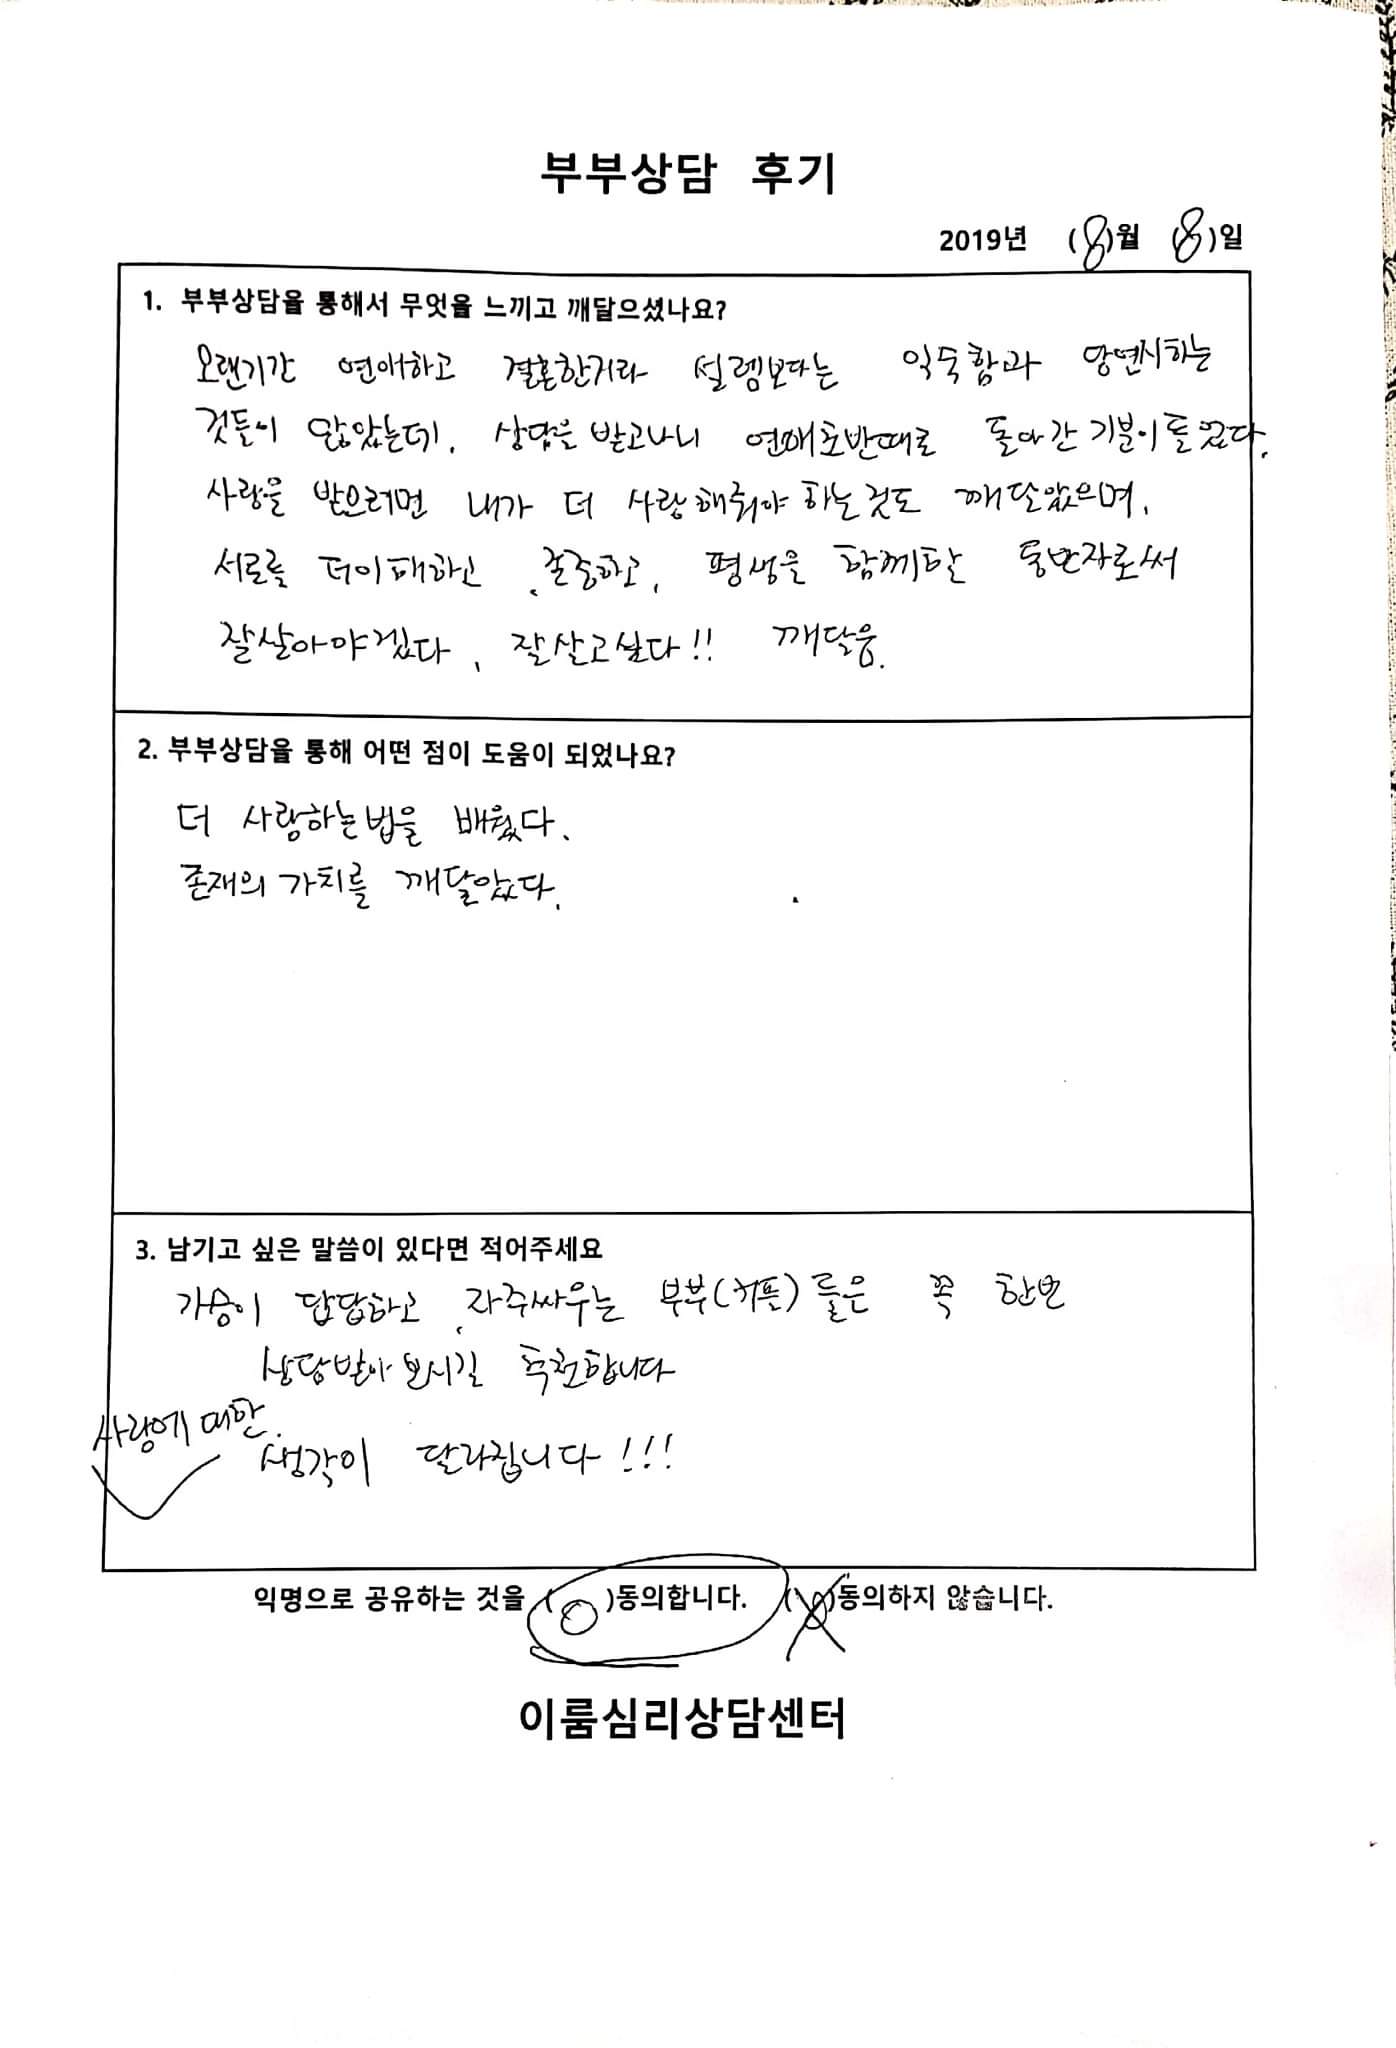 부부상담 후기
2019년 (8)월 (8)일
1. 부부상담을 통해서 무엇을 느끼고 깨달으셨나요?
오랜기간 연애하고 결혼한거라 설렘보다는 익숙함과 당연시하는
것들이 많았는데, 상담을 받고나니 연애초반때로 돌아간 기분이 들었다.
사랑을 받으려면 내가 더 사랑해줘야 하는것도 깨달았으며,
서로를 더이해하고, 존중하고, 평생을 함께할 동반자로써
잘살아야겠다, 잘살고싶다!! 깨달음.
2. 부부상담을 통해 어떤 점이 도움이 되었나요?
더 사랑하는법을 배웠다.
존재의 가치를 깨달았다.
3. 남기고 싶은 말씀이 있다면 적어주세요
가슴이 답답하고, 자주싸우는 부부(커플)들은 꼭 한번
상담받아 보시길 추천합니다
사랑에 대한
생각이 달라집니다!!!
익명으로 공유하는 것을 ( O )동의합니다. ( )동의하지 않습니다.
이룸심리상담센터